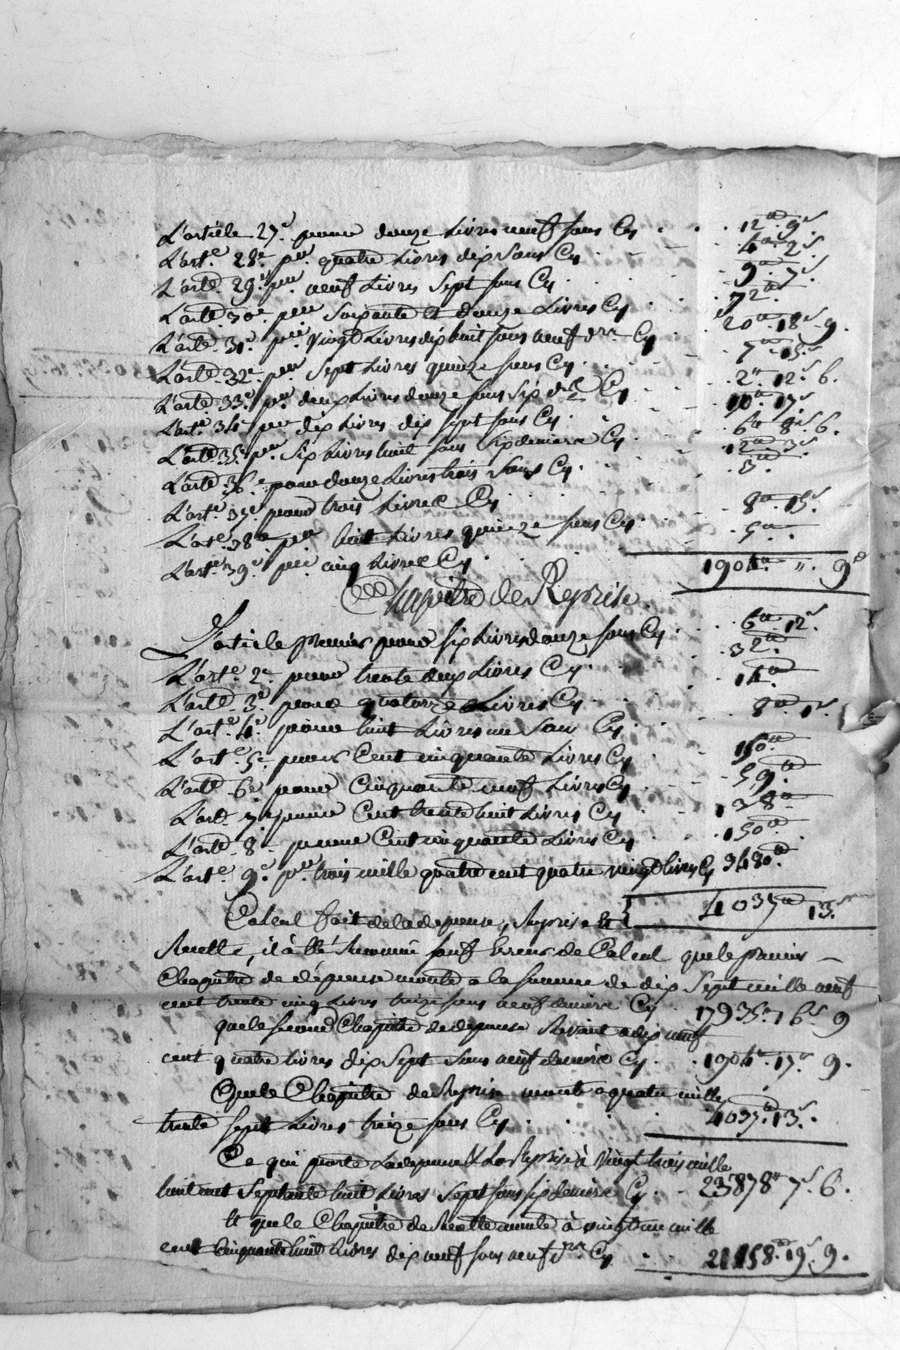 L'article 27e pour douze Livres neuf sous Cy . . . 12tt 9s
L'arte 28e pour quatre Livres dix sous Cy . . 4tt 2s.
L'arte 29e pour neuf Livres Sept sous Cy . . 9tt 7s
L'arte 30e pour Soixante et douze Livres Cy . . 72tt
L'arte 31e pour vingt Livres dix huit sous neuf drs Cy . 20tt 18s 9.
L'arte 32e pour Sept Livres quinze sous Cy . . 7tt 15s
L'arte 33e pour deux Livres douze sous six drs Cy . . 2tt 12s 6.
L'arte 34e pour dix Livres dix sept sous Cy . . 10tt 17s
L'arte 35e pour Six Livres huit sous six deniers Cy . . 6tt 8s 6.
L'arte 36e pour douze Livres trois sous Cy . . 12tt 3s
L'arte 37e pour trois Livres Cy . . 3tt
L'arte 38e pour huit Livres quinze sous Cy . . 8tt 15s.
L'arte 39e pour cinq Livres Cy . . 5tt
1904tt " 9d
Chapitre de Reprise
L'article premier pour six Livres douze sous Cy . . 6tt 12s
L'arte 2e pour trente deux Livres Cy . . 32tt
L'arte 3e pour quatorze Livres Cy . . 14tt
L'arte 4e pour huit Livres un sou Cy . . 8tt 1s.
L'arte 5e pour Cent cinquante Livres Cy . . 150tt
L'arte 6e pour Cinquante neuf Livres Cy . . 59tt
L'arte 7e pour Cent trente huit Livres Cy . . 138tt
L'arte 8e pour Cent cinquante Livres Cy . . 150tt
L'arte 9e pour trois mille quatre cent quatre vingt livres Cy 3480tt
4037tt 13s
Calcul fait de la depense, Reprise &
Recette, il a été Reconnu sauf Erreur de Calcul que le premier
Chapitre de dépense monte a la somme de dix Sept mille neuf
cent trente cinq Livres treize sous neuf deniers Cy . 17935tt 16s 9
que le second Chapitre de depense Revient a dix neuf
cent quatre livres dix Sept sous neuf deniers Cy . . 1904tt 17s 9.
Que le Chapitre de Reprise monte a quatre mille
trente sept Livres treize sous Cy . . 4037tt 13s.
Ce qui porte La depense & La Reprise à Vingt trois mille
huit cent Septante huit Livres Sept sous six deniers Cy . . 23878tt 7s 6.
Et que le Chapitre de Recette monte à vingt un mille
cent Cinquante huit Livres dix neuf sous neuf drs Cy . . 21158tt 19s 9.